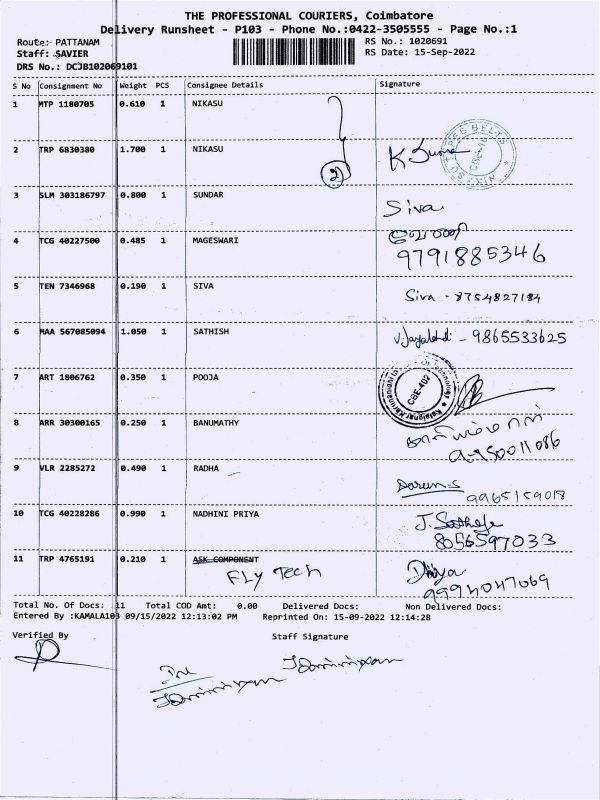 THE PROFESSIONAL COURIERS, Coimbatore
Delivery Runsheet - P103 - Phone No.:0422-3505555 - Page No.:1
Route: PATTANAM RS No.: 1020691
Staff: SAVIER RS Date: 15-Sep-2022
DRS No.: DCJB102069101
S No Consignment No Weight PCS Consignee Details Signature
1 MTP 1180705 0.610 1 NIKASU
2 TRP 6830380 1.700 1 NIKASU 2 K Suma
3 SLM 303186797 0.800 1 SUNDAR Siva
4 TCG 40227500 0.485 1 MAGESWARI
9791885346
5 TEN 7346968 0.190 1 SIVA Siva - 8754827184
6 MAA 567085094 1.050 1 SATHISH - 9865533625
7 ART 1806762 0.350 1 POOJA CBE-402
8 ARR 30300165 0.250 1 BANUMATHY
9 VLR 2285272 0.490 1 RADHA
9965159018
10 TCG 40228286 0.990 1 NADHINI PRIYA
8056597033
11 TRP 4765191 0.210 1 ASK COMPONENT Dhiya
FLY Tech 9994047069
Total No. Of Docs: 11 Total COD Amt: 0.00 Delivered Docs: Non Delivered Docs:
Entered By :KAMALA103 09/15/2022 12:13:02 PM Reprinted On: 15-09-2022 12:14:28
Verified By Staff Signature